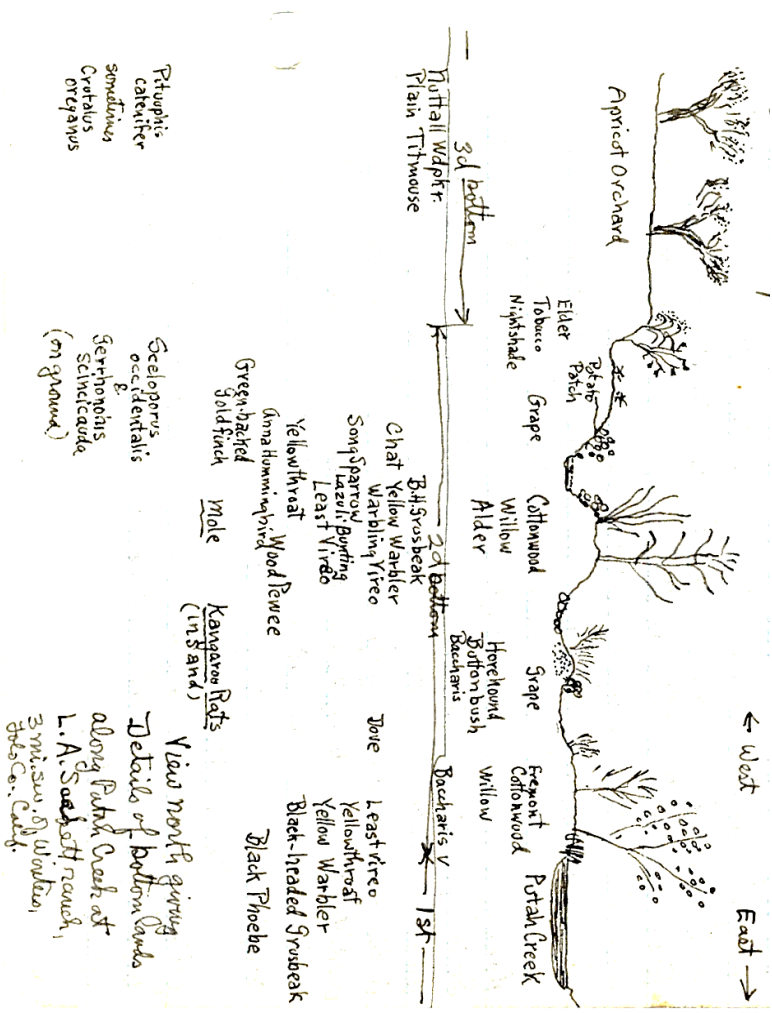 ← West
East →
Apricot Orchard
Elder
Tobacco
Nightshade
Potato
Patch
Grape
Cottonwood
Willow
Alder
Grape
Horehound
Buttonbush
Baccharis
Fremont
Cottonwood
Willow
Putah Creek
3d bottom
2d bottom
Baccharis
1st
Nuttall Wdpkr.
Plain Titmouse
B.H. Grosbeak
Chat Yellow Warbler
Warbling Vireo
Song Sparrow
Lazuli Bunting
Least Vireo
Yellowthroat
Anna Hummingbird Wood Pewee
Green-backed
Goldfinch
Dove
Least vireo
Yellowthroat
Yellow Warbler
Black-headed Grosbeak
Black Phoebe
Mole
Kangaroo Rats
(in sand)
Pituophis
catenifer
sometimes
Crotalus
oreganus
Sceloporus
occidentalis
&
Gerrhonotus
scincicauda
(on ground)
View north giving
Details of bottom lands
along Putah Creek at
L. A. ranch,
3 mi. sw. of Winters,
Yolo Co. Calif.